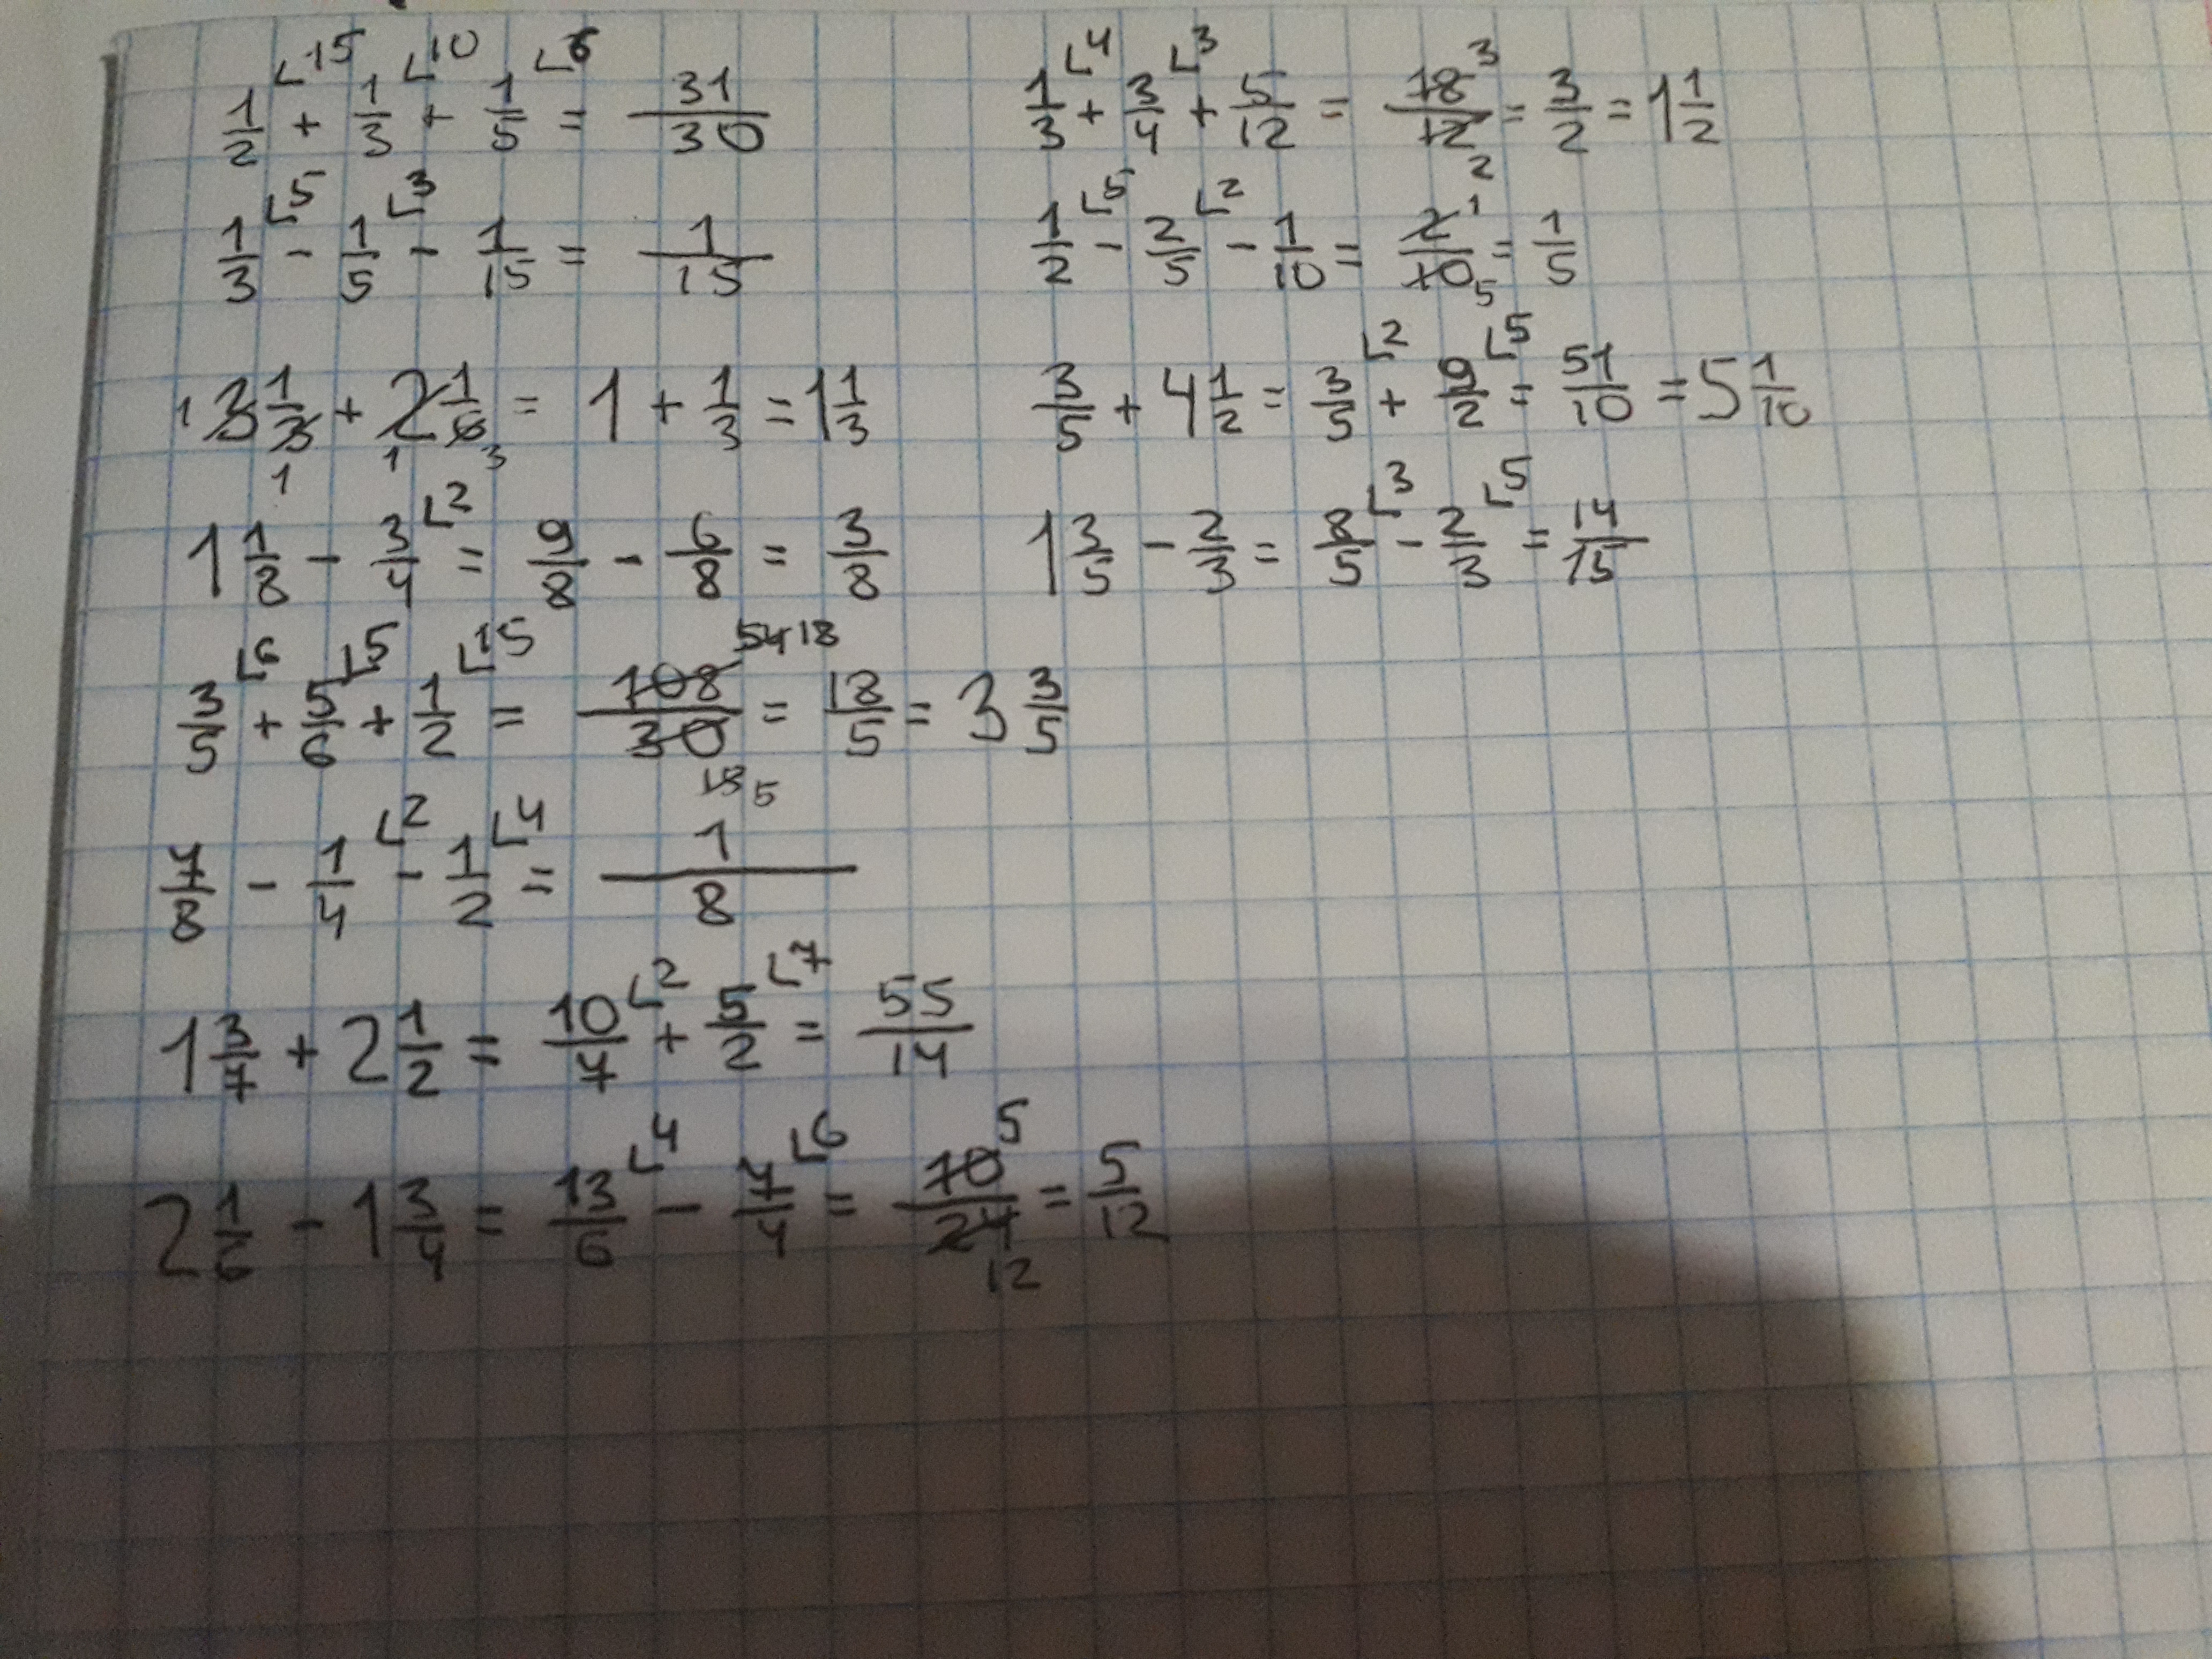 1/2 ⌞15 + 1/3 ⌞10 + 1/5 ⌞6 = 31/30
1/3 ⌞4 + 3/4 ⌞3 + 5/12 = 18/12 3 2 = 3/2 = 1 1/2
1/3 ⌞5 - 1/5 ⌞3 - 1/15 = 1/15
1/2 ⌞5 - 2/5 ⌞2 - 1/10 = 2/10 1 5 = 1/5
1 3 1/3 1 + 2 1 1/6 3 = 1 + 1/3 = 1 1/3
3/5 + 4 1/2 = 3/5 ⌞2 + 9/2 ⌞5 = 51/10 = 5 1/10
1 1/8 - 3/4 ⌞2 = 9/8 - 6/8 = 3/8
1 3/5 - 2/3 = 8/5 ⌞3 - 2/3 ⌞5 = 14/15
3/5 ⌞6 + 5/6 ⌞5 + 1/2 ⌞15 = 108/30 54 18 5 = 18/5 = 3 3/5
7/8 - 1/4 ⌞2 - 1/2 ⌞4 = 1/8
1 3/7 + 2 1/2 = 10/7 ⌞2 + 5/2 ⌞7 = 55/14
2 1/6 - 1 3/4 = 13/6 ⌞4 - 7/4 ⌞6 = 10/24 5 12 = 5/12